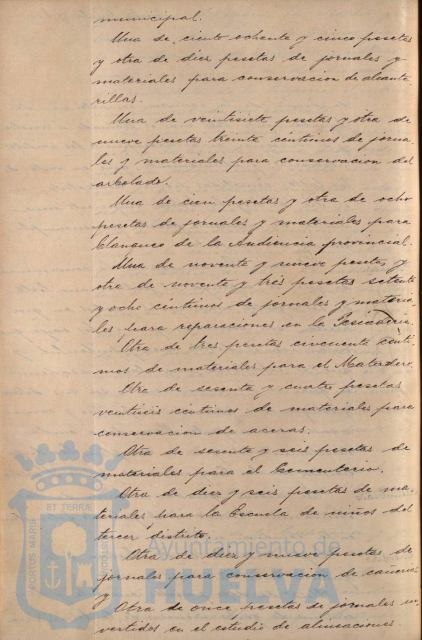 municipal.
Una de ciento ochenta y cinco pesetas
y otra de diez pesetas de jornales y
materiales para conservacion de alcanta-
rillas.
Una de veintisiete pesetas y otra de
nueve pesetas treinta céntimos de jorna-
les y materiales para conservacion del
arbolado.
Una de cien pesetas y otra de ocho
pesetas de jornales y materiales para
blanqueo de la Audiencia provincial.
Una de noventa y nueve pesetas y
otra de noventa y tres pesetas setenta
y ocho céntimos de jornales y materia-
les para reparaciones en la Pescadería.
Otra de tres pesetas cincuenta cénti-
mos de materiales para el Matadero.
Otra de sesenta y cuatro pesetas
veintiseis céntimos de materiales para
conservacion de aceras.
Otra de sesenta y seis pesetas de
materiales para el Cementerio.
Otra de diez y seis pesetas de ma-
teriales para la Escuela de niños del
tercer distrito.
Otra de diez y nueve pesetas de
jornales para conservacion de
y
Otra de once pesetas de jornales in-
vertidos en el estudio de alineaciones.
PORTUS MARIS
ET TERRÆ
Ayuntamiento de
HUELVA